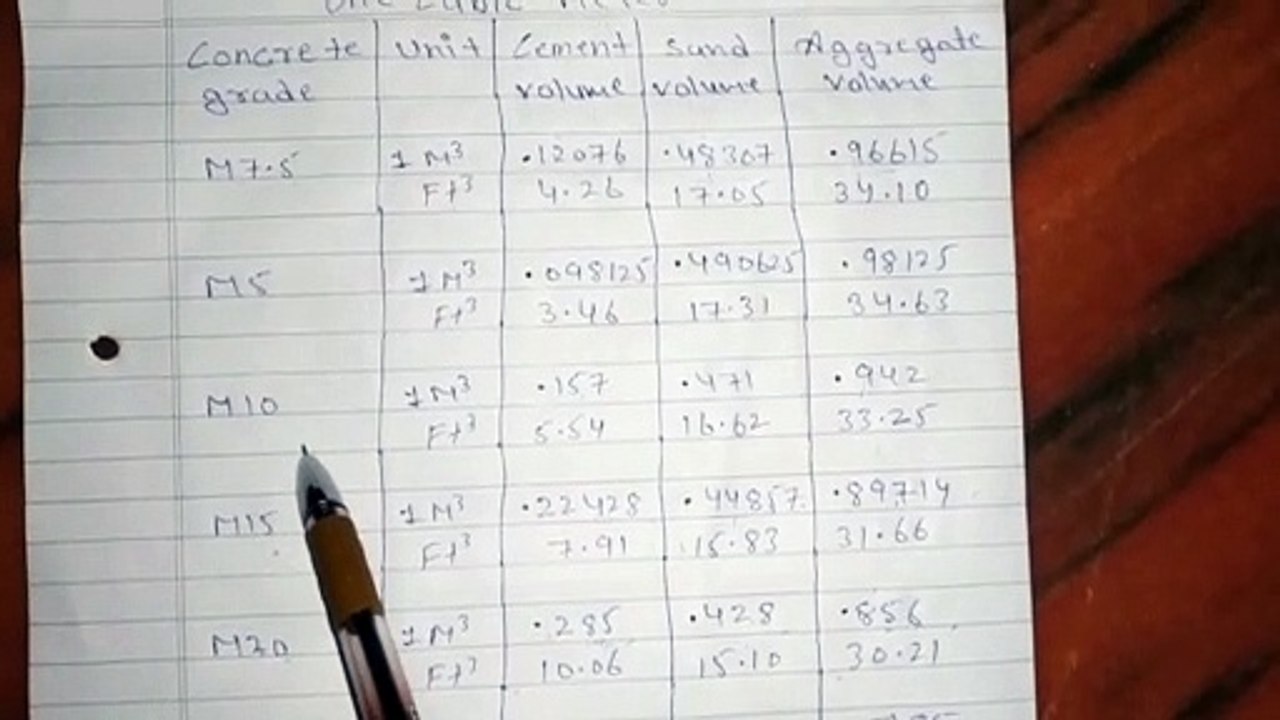 One Cubic Meter
Concrete grade | Unit | Cement volume | Sand volume | Aggregate volume
M7.5 | 1 M³ | .12076 | .48307 | .96615
Ft³ | 4.26 | 17.05 | 34.10
M5 | 1 M³ | .098125 | .490625 | .98125
Ft³ | 3.46 | 17.31 | 34.63
M10 | 1 M³ | .157 | .471 | .942
Ft³ | 5.54 | 16.62 | 33.25
M15 | 1 M³ | .22428 | .44857 | .89714
Ft³ | 7.91 | 15.83 | 31.66
M20 | 1 M³ | .285 | .428 | .856
Ft³ | 10.06 | 15.10 | 30.21